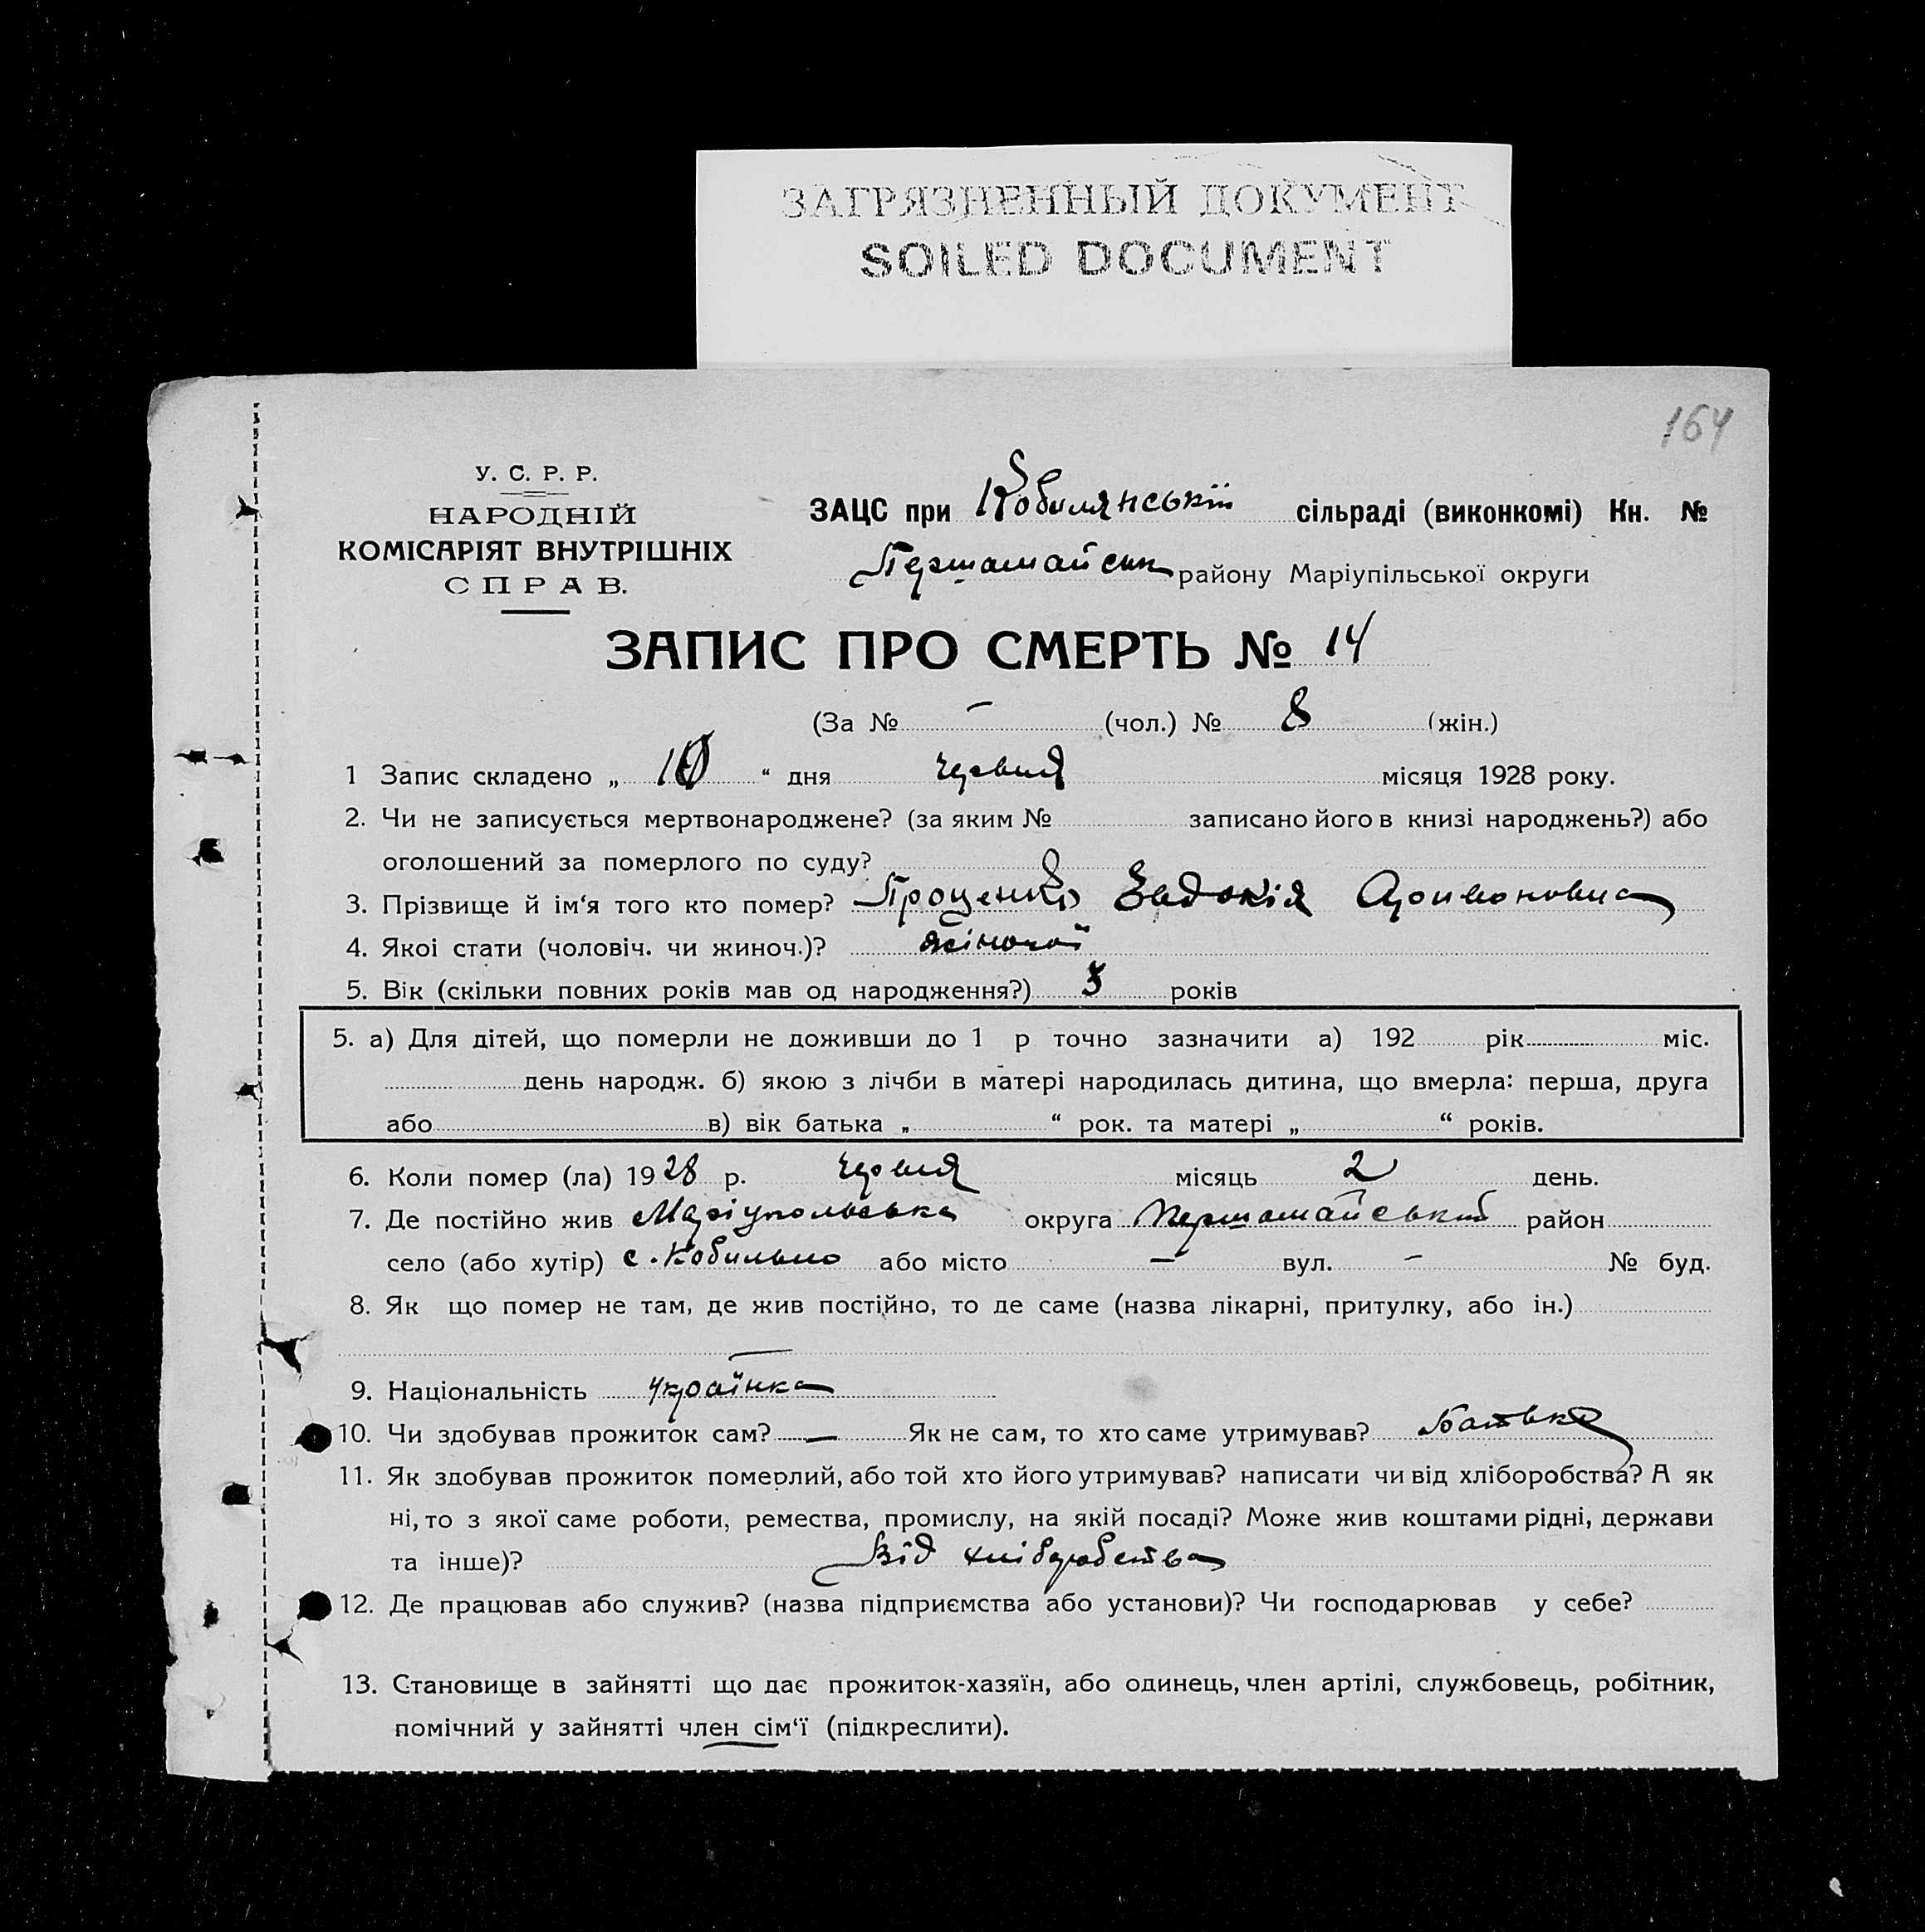 ЗАГРЯЗНЕННЫЙ ДОКУМЕНТ
SOILED DOCUMENT
164
У. С. Р. Р.
НАРОДНІЙ
КОМІСАРІЯТ ВНУТРІШНІХ
СПРАВ.
ЗАЦС при Кобилянській сільраді (виконкомі) Кн. №
Першамайськ району Маріупільської округи
ЗАПИС ПРО СМЕРТЬ № 14
(За № – (чол.) № 8 (жін.)
1 Запис складено „ 10 “ дня червня місяця 1928 року.
2. Чи не записується мертвонароджене? (за яким № записано його в книзі народжень?) або
оголошений за померлого по суду?
3. Прізвище й ім‘я того кто помер? Проценко Евдокія
4. Якоі стати (чоловіч. чи жиноч.)? жіночої
5. Вік (скільки повних років мав од народження?) 3 років
5. а) Для дітей, що померли не доживши до 1 р точно зазначити а) 192 рік міс.
день народж. б) якою з лічби в матері народилась дитина, що вмерла: перша, друга
або в) вік батька „ “ рок. та матері „ “ років.
6. Коли помер (ла) 1928 р. червня місяць 2 день.
7. Де постійно жив Маріупольська округа Першамайський район
село (або хутір) с. Кобильно або місто — вул. – № буд.
8. Як що помер не там, де жив постійно, то де саме (назва лікарні, притулку, або ін.)
—
9. Національність українка
10. Чи здобував прожиток сам? — Як не сам, то хто саме утримував? Батько
11. Як здобував прожиток померлий, або той хто його утримував? написати чи від хліборобства? А як
ні, то з якої саме роботи, ремества, промислу, на якій посаді? Може жив коштами рідні, держави
та інше)? Від хліборобства
12. Де працював або служив? (назва підприємства або установи)? Чи господарював у себе?
13. Становище в зайнятті що дає прожиток-хазяїн, або одинець, член артілі, службовець, робітник,
помічний у зайнятті член сім‘ї (підкреслити).